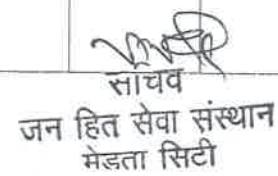 सचिव
जन हित सेवा संस्थान
मेडता सिटी